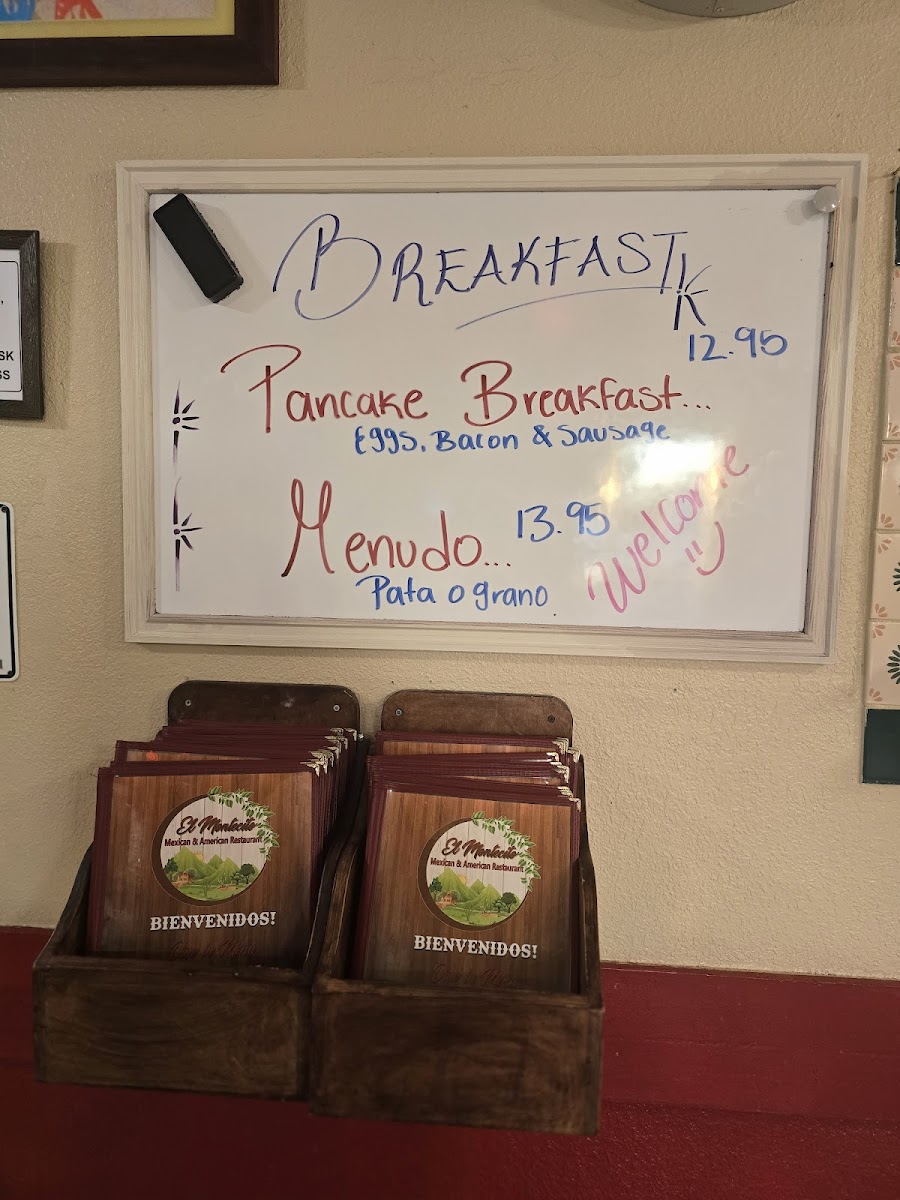 BREAKFAST
12.95
Pancake Breakfast...
Eggs, Bacon & Sausage
Menudo... 13.95
Pata o grano
Welcome
SK
SS
El Montecito
Mexican & American Restaurant
BIENVENIDOS!
El Montecito
Mexican & American Restaurant
BIENVENIDOS!